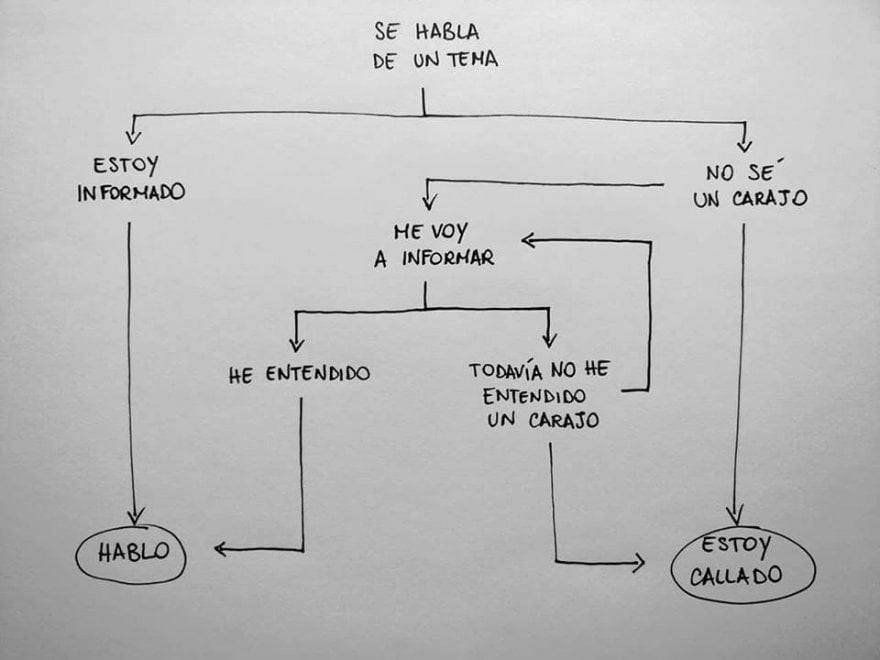 SE HABLA
DE UN TEMA
ESTOY
INFORMADO
NO SÉ
UN CARAJO
ME VOY
A INFORMAR
HE ENTENDIDO
TODAVÍA NO HE
ENTENDIDO
UN CARAJO
HABLO
ESTOY
CALLADO